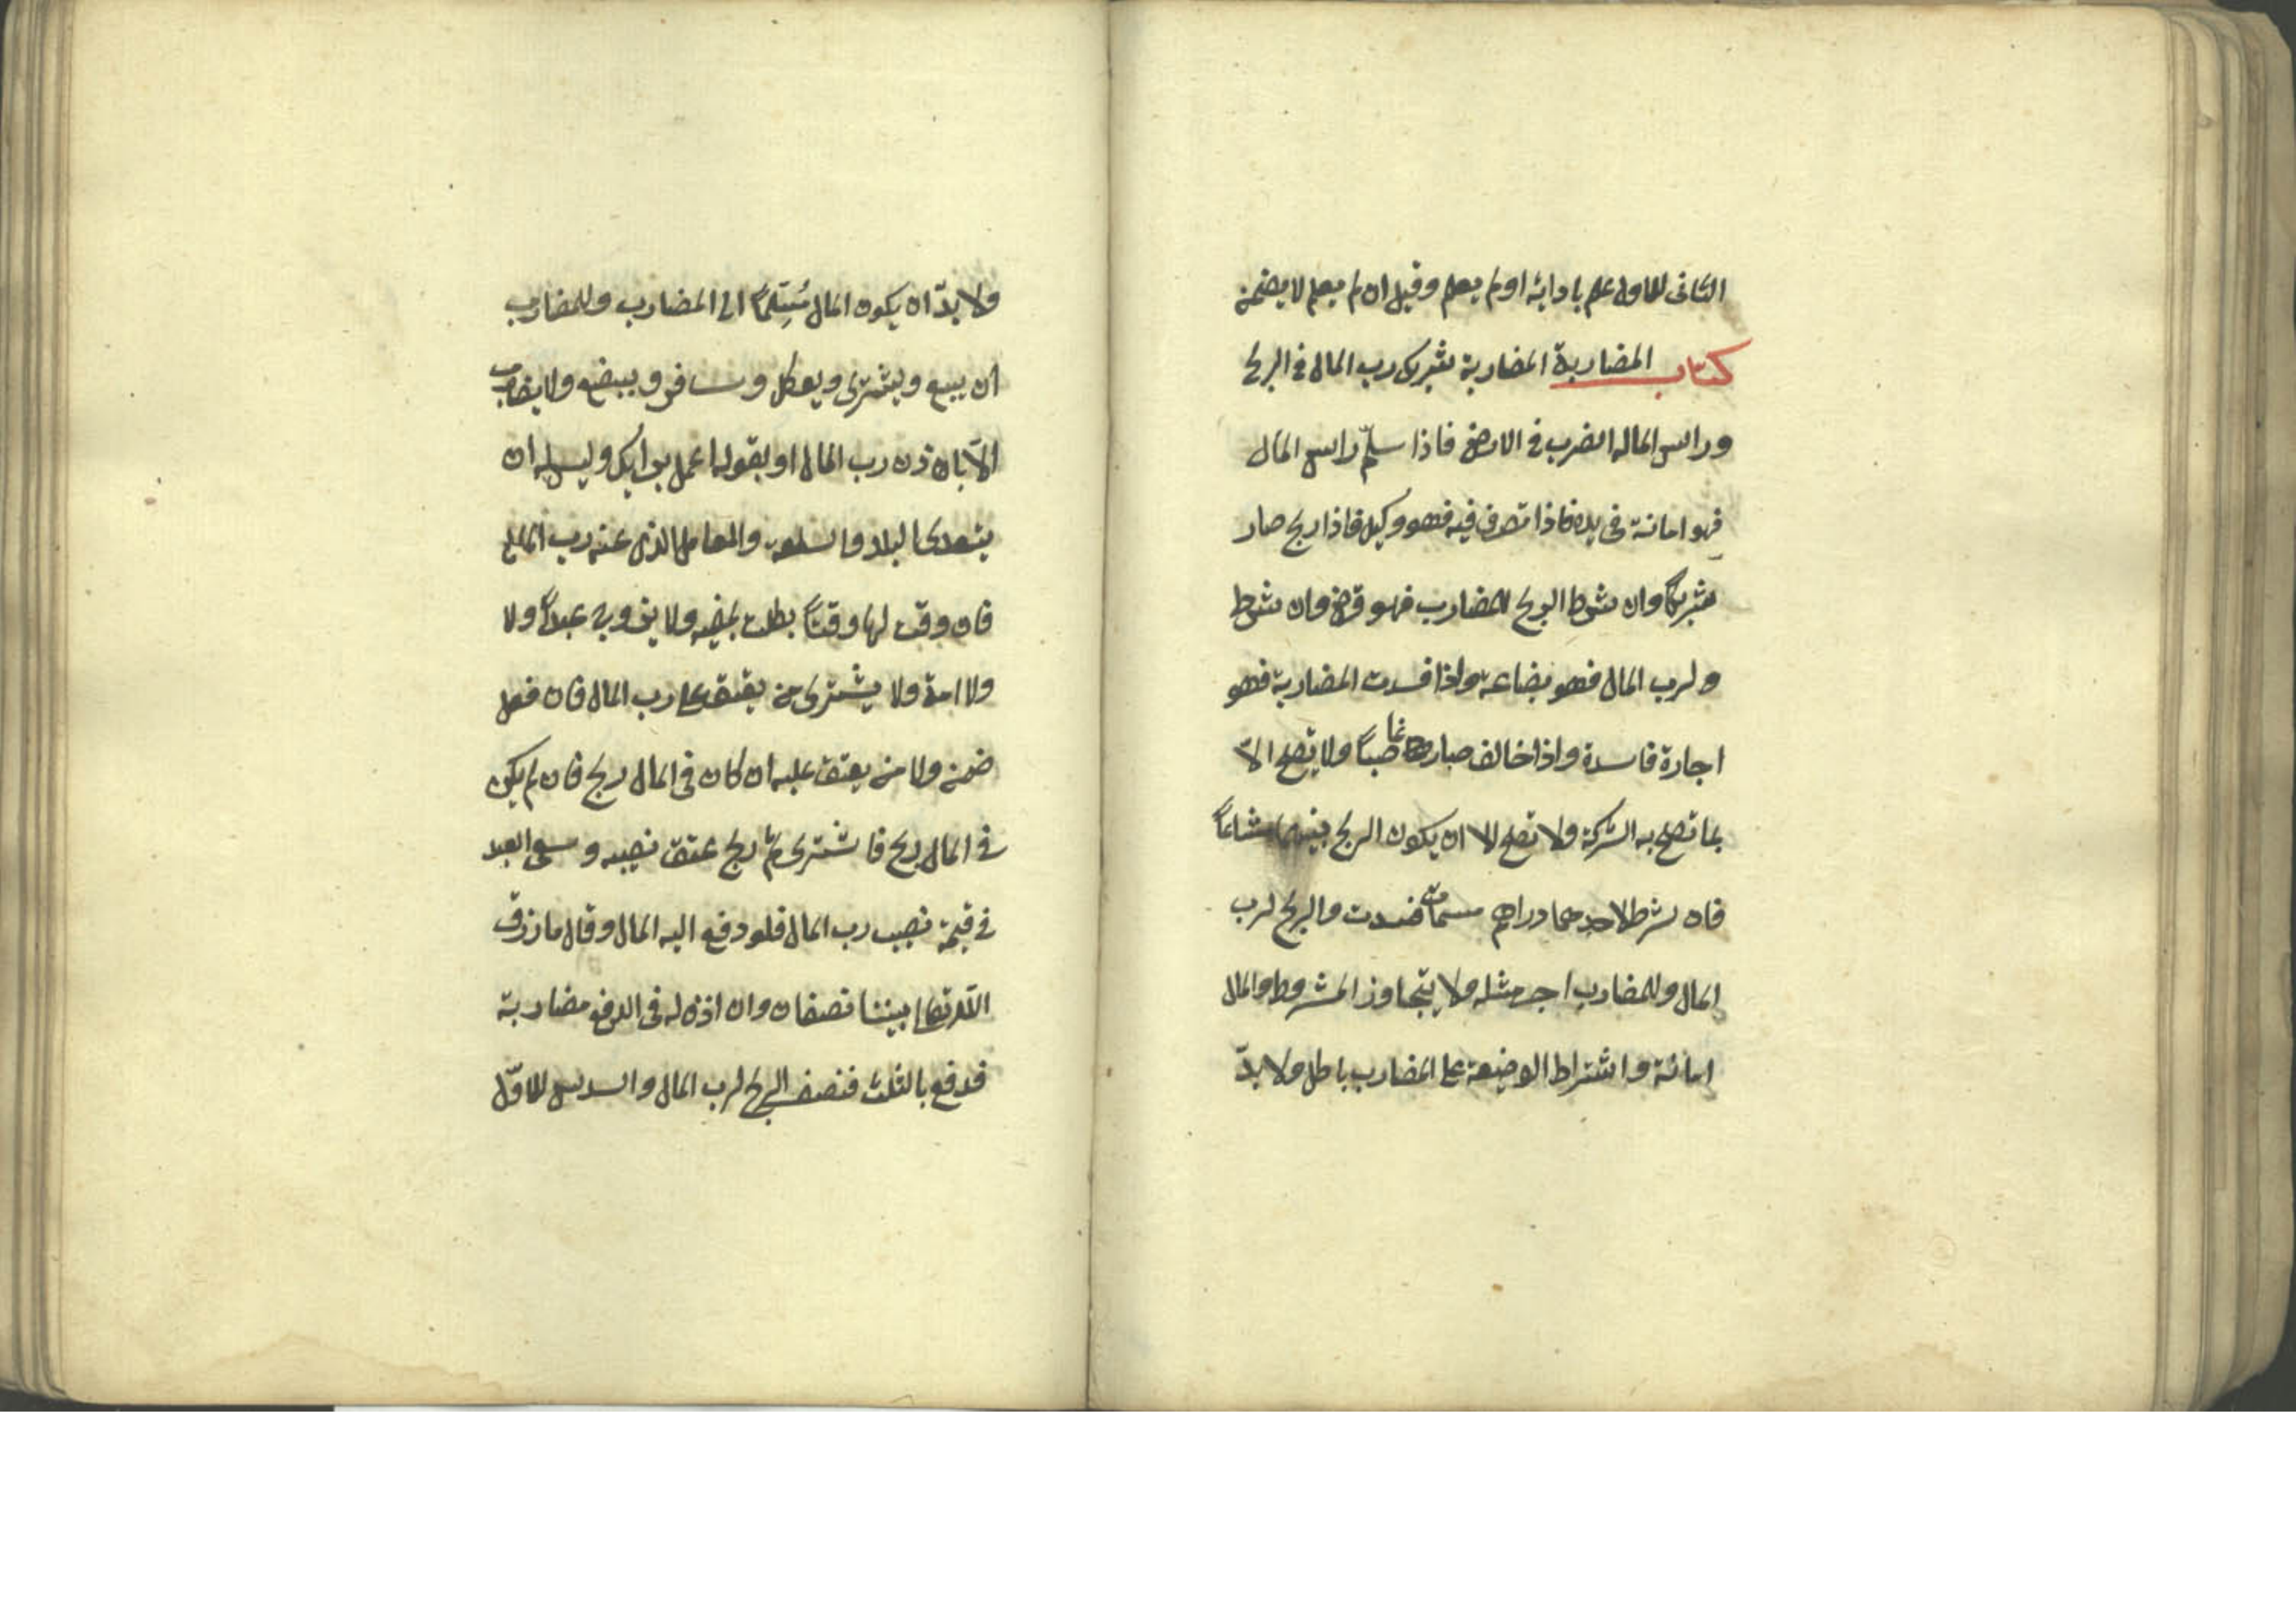 الثانى للاول علم بادائه اولم يعلم وقيل ان لم يعلم لا يضمن
كتاب المضاربة المضاربة شريك رب المال فى الربح
وراس ماله الضرب فى الارض فاذا سلم راس المال
فهو امانة فى يده فاذا تصرف فيه فهو وكيل فاذا ربح صار
شريكاً وان شرط الربح للمضارب فهو قرض وان شرط
ولرب المال فهو بضاعة واذا فسدت المضاربة فهو
اجارة فاسدة واذا خالف صار غاصباً ولا تصح الاّ
بما تصح به الشركة ولا تصح الا ان يكون الربح بينهما مشاعاً
فان شرط لاحدهما دراهم مسماة فسدت والربح لرب
المال وللمضارب اجر مثله ولا يتجاوز المشروط والمال
امانة واشتراط الوضيعة على المضارب باطل ولا بدّ
ولا بدّ ان يكون المال مُسَلَّماً الى المضارب وللمضارب
ان يبيع ويشترى ويوكل وسافر ويبضع ولا يضارب
الاّ باذن رب المال او بقوله اعمل برايك وليس له ان
يتعدى البلد والسلعة والمعامل الذى عينه رب المال
فان وقت لها وقتاً بطلت بمضيه ولا يزوج عبداً ولا
ولا امة ولا يشترى من يعتق على رب المال فان فعل
ضمن ولا من يعتق عليه ان كان فى المال ربح فان لم يكن
فى المال ربح فاشترى ثم ربح عتق نصيبه وسعى العبد
فى قيمة نصيب رب المال فلو دفع اليه المال وقال ما رزق
الله تعالى بيننا نصفان وان اذن له فى الدفع مضاربة
فدفع بالثلث فنصف الربح لرب المال والسدس للاوّل